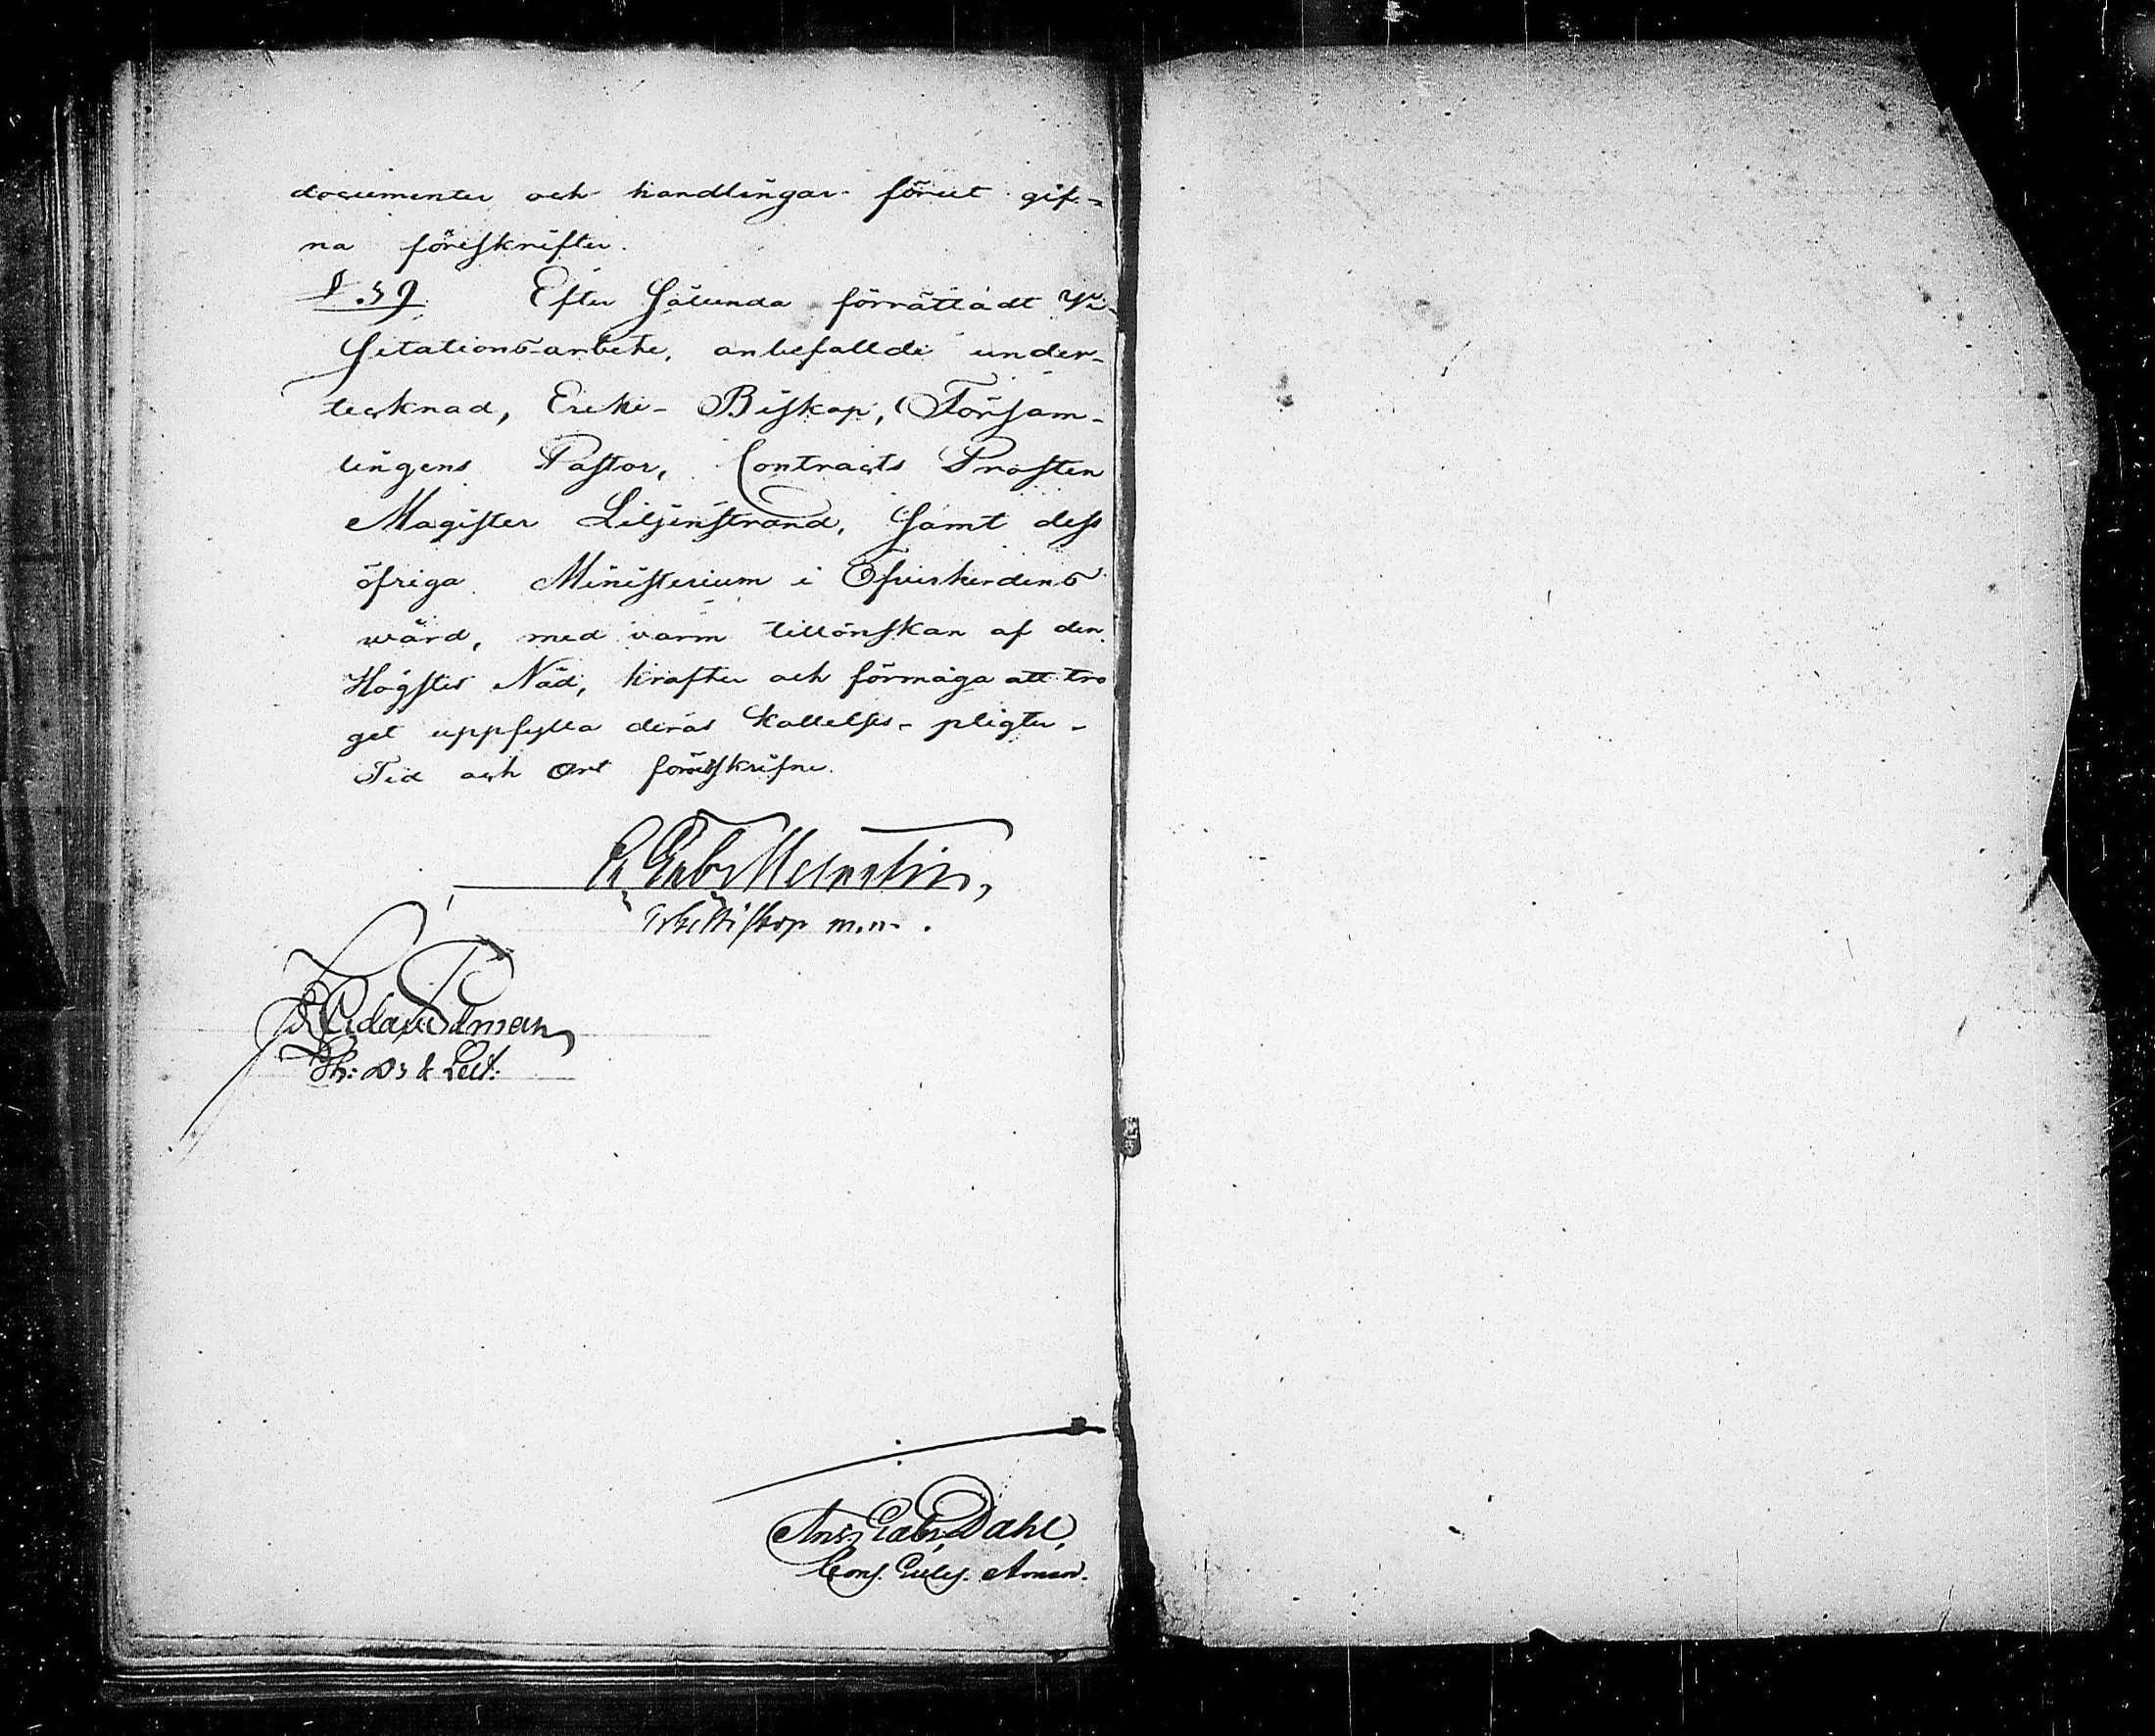 documenter och handlingar förut gif-
na föreskrifter.
§.39 Efter sålunda förrättadt Vi-
sitations-arbete, anbefallde under-
tecknad, Ercke-Biskop, Försam-
lingens Pastor, Contracts Prosten
Magister Liljenstrand, samt dess
öfriga Ministerium i Öfverherdens
wård, med varm tillönskan af den
Högstes Nåd, krafter och förmåga att tro
get uppfylla deras kallelses-pligter.
Tid och Ort föreskrifne.
E. Gabr Melartin,
ErkeBiskop m.m.
Edman
Th: Dr & Lect:
Ands. Gabr. Dahl,
Cons. Eccles. Aman.